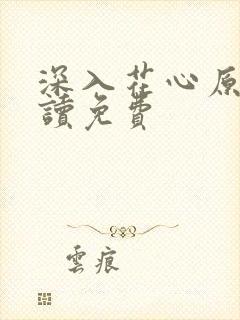 深入花心原
讀免費
雲痕